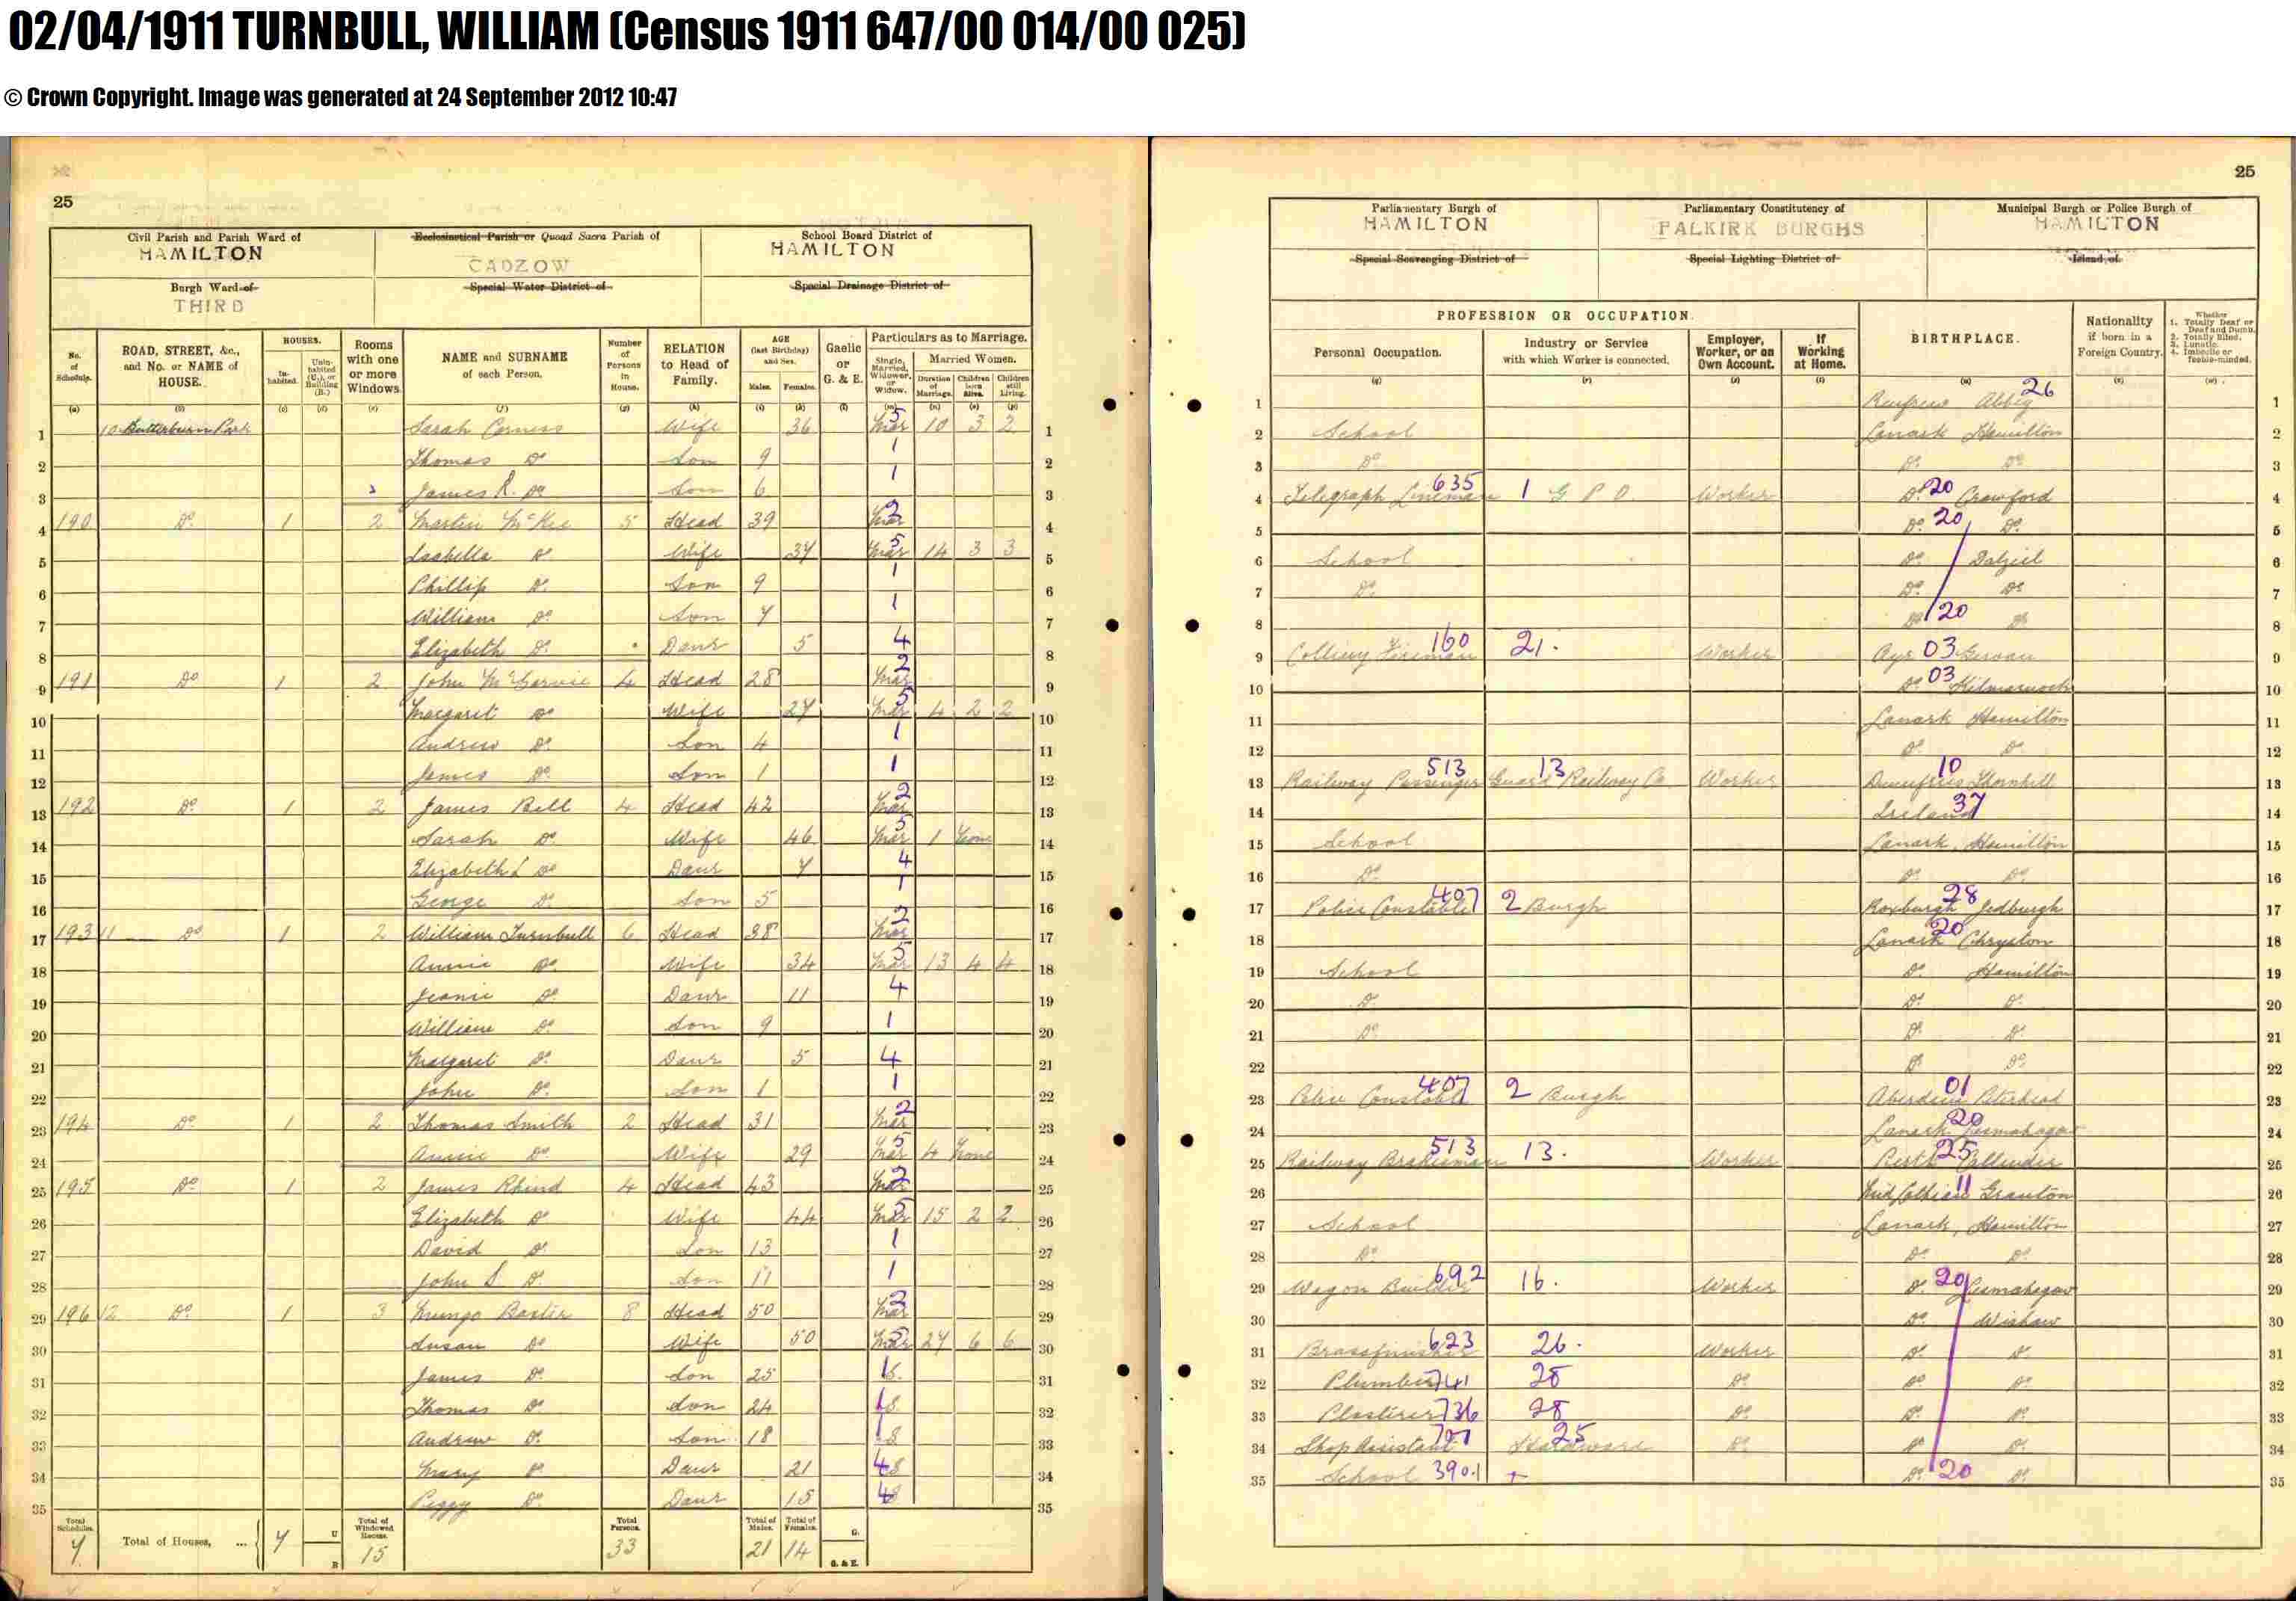 02/04/1911 TURNBULL, WILLIAM (Census 1911 647/00 014/00 025)
© Crown Copyright. Image was generated at 24 September 2012 10:47
25
Civil Parish and Parish Ward of
HAMILTON
Ecclesiastical Parish or Quoad Sacra Parish of
CADZOW
School Board District of
HAMILTON
Burgh Ward of
THIRD
Special Water District of
Special Drainage District of
No. of Schedule. ROAD, STREET, &c., and No. or NAME of HOUSE. HOUSES. Inhabited. Uninhabited (U.), or Building (B.) Rooms with one or more Windows. NAME and SURNAME of each Person. Number of Persons in House. RELATION to Head of Family. AGE (last Birthday) and Sex. Males. Females. Gaelic or G. & E. Particulars as to Marriage. Single, Married, Widower, or Widow. Married Women. Duration of Marriage. Children born Alive. Children still Living.
(a) (b) (c) (d) (e) (f) (g) (h) (i) (k) (l) (m) (n) (o) (p)
1 10 Butterburn Park Sarah Wife 36 Mar 5 10 3 2 1
2 Thomas Do Son 9 1 2
3 James R. Do Son 6 1 3
4 190 Do 1 2 Martin McKie 5 Head 39 Mar 2 4
5 Isabella Do Wife 37 Mar 5 14 3 3 5
6 Phillip Do Son 9 1 6
7 William Do Son 7 1 7
8 Elizabeth Do Daur 5 4 8
9 191 Do 1 2 John McGarvie 4 Head 28 Mar 2 9
10 Margaret Do Wife 27 Mar 5 4 2 2 10
11 Andrew Do Son 4 1 11
12 James Do Son 1 1 12
13 192 Do 1 2 James Bell 4 Head 42 Mar 2 13
14 Sarah Do Wife 46 Mar 5 1 None 14
15 Elizabeth L Do Daur 7 4 15
16 George Do Son 5 1 16
17 193 11 Do 1 2 William Turnbull 6 Head 38 Mar 2 17
18 Annie Do Wife 34 Mar 5 13 4 4 18
19 Jeanie Do Daur 11 4 19
20 William Do Son 9 1 20
21 Margaret Do Daur 5 4 21
22 John Do Son 1 1 22
23 194 Do 1 2 Thomas Smith 2 Head 31 Mar 2 23
24 Annie Do Wife 29 Mar 5 4 None 24
25 195 Do 1 2 James Rhind 4 Head 43 Mar 2 25
26 Elizabeth Do Wife 44 Mar 5 15 2 2 26
27 David Do Son 13 1 27
28 John S Do Son 11 1 28
29 196 12 Do 1 3 Mungo Baxter 8 Head 50 Mar 2 29
30 Susan Do Wife 50 Mar 5 27 6 6 30
31 James Do Son 25 1 S. 31
32 Thomas Do Son 24 1 S. 32
33 Andrew Do Son 18 1 S 33
34 Mary Do Daur 21 4 S 34
35 Peggy Do Daur 15 4 S 35
Total Schedules. 7 Total of Houses, ... 7 U B Total of Windowed Rooms. 15 Total Persons. 33 Total of Males. 21 Total of Females. 14 G. G. & E.
25
Parliamentary Burgh of
HAMILTON
Parliamentary Constitutency of
FALKIRK BURGHS
Municipal Burgh or Police Burgh of
HAMILTON
Special Scavenging District of
Special Lighting District of
Island of
PROFESSION OR OCCUPATION.
Personal Occupation. Industry or Service with which Worker is connected. Employer, Worker, or on Own Account. If Working at Home. BIRTHPLACE. Nationality if born in a Foreign Country. Whether 1. Totally Deaf or Deaf and Dumb. 2. Totally Blind. 3. Lunatic. 4. Imbecile or Feeble-minded.
(q) (r) (s) (t) (u) (v) (w)
1 Renfrew Abbey 26 1
2 School Lanark Hamilton 2
3 Do Do Do 3
4 Telegraph Lineman 635 1 G P O. Worker Do 20 Crawford 4
5 Do 20 Do 5
6 School Do Dalziel 6
7 Do Do Do 7
8 Do 20 Do 8
9 Colliery Fireman 160 21. Worker Ayr 03 Girvan 9
10 Do 03 Kilmarnock 10
11 Lanark Hamilton 11
12 Do Do 12
13 Railway Passenger Guard 513 13 Railway Co Worker Dumfries 10 Thornhill 13
14 Ireland 37 14
15 School Lanark, Hamilton 15
16 Do Do Do 16
17 Police Constable 407 2 Burgh Roxburgh 28 Jedburgh 17
18 Lanark 20 Chryston 18
19 School Do Hamilton 19
20 Do Do Do 20
21 Do Do Do 21
22 Do Do 22
23 Police Constable 407 2 Burgh Aberdeen 01 Peterhead 23
24 Lanark 20 Lesmahagow 24
25 Railway Brakesman 513 13. Worker Perth 25 Callender 25
26 Mid Lothian 11 Granton 26
27 School Lanark, Hamilton 27
28 Do Do Do 28
29 Wagon Builder 692 16. Worker Do 20 Lesmahagow 29
30 Do Wishaw 30
31 Brassfinisher 623 26. Worker Do Do 31
32 Plumber 741 28 Do Do Do 32
33 Plasterer 736 28 Do Do Do 33
34 Shop Assistant Hardware 25 Do Do Do 34
35 School 390.1 Do 20 Do 35